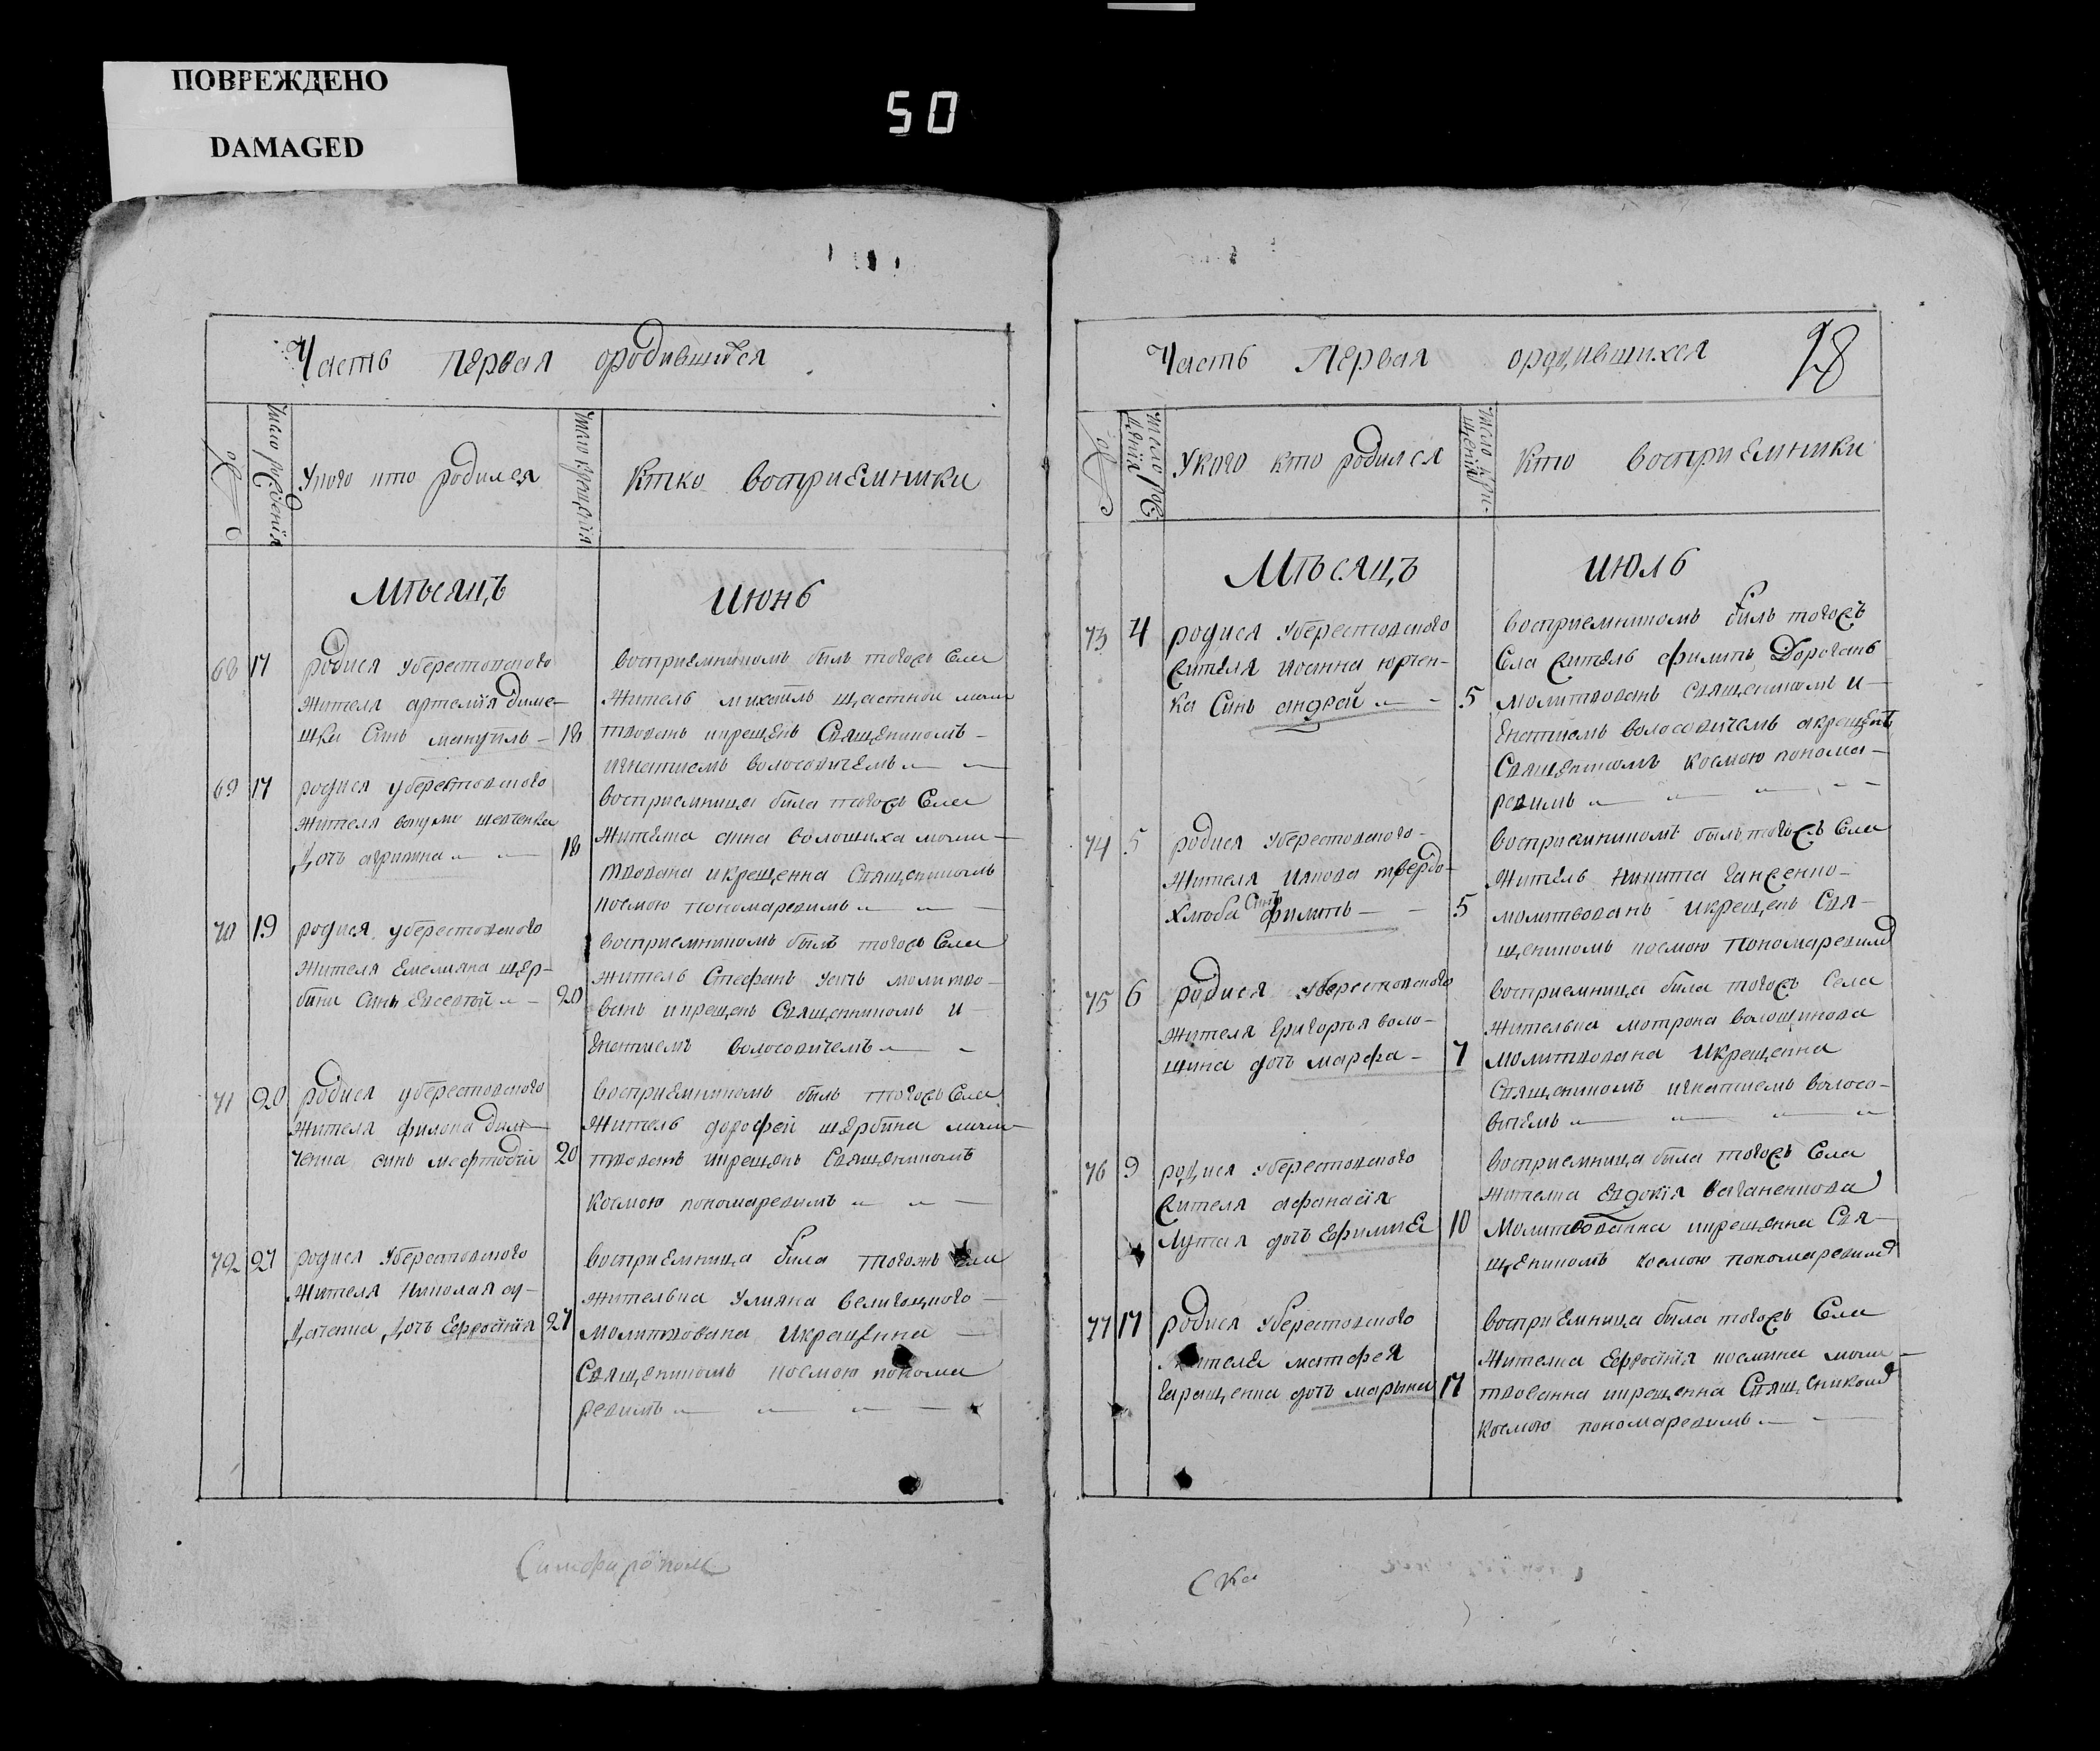 ПОВРЕЖДЕНО
DAMAGED
50
Часть первая ородившихся
№ Число рождения Укого кто родился Число крещения Ктко восприемники
Мѣсяцъ Июнь
68 17 родися уберестовского
жителя артемія Диме-
шки Синъ мануилъ - 18
восприемникомъ былъ тогожъ Села
Житель михаилъ щастной моли
твованъ икрещенъ Священикомъ -
игнатиемъ волосовичемъ
69 17 родися уберестовского
жителя шевченка
Дочь агрипина 18
восприемница била тогожъ Села
жителка анна волошиха моли-
твована икрещенна Священикомъ
космою пономаревимъ
70 19 родися уберестовского
жителя Емелияна щер-
бини Синъ Евсевтой - 20
восприемникомъ былъ тогожъ Села
житель Стефанъ молитво-
ванъ икрещенъ Священникомъ и-
гнатиемъ волосовичемъ
71 20 родися уберестовского
жителя филона Дим
ченка синъ мефтодій 20
восприемникомъ былъ тогожъ Села
Житель дорофей щербина моли
твованъ икрещенъ Священикомъ
космою пономаревимъ
72 27 родися Уберестовского
Жителя Николая ду-
Дченка Дочь Ефросінія 27
восприемница била тогожъ Села
жителка Улияна Величцного
Молитвована Икрещенна -
Священикомъ космою понома
ревимъ
Симфирополя
Часть Первая ородившихся 98
№ Число рождения Укого кто родился Число крещения Кто восприемники
Мѣсяцъ Июль
73 4 родися Уберестовского
жителя иоанна юрчен-
ка Синъ андрей 5
восприемникомъ билъ тогожъ
Села житель филипъ Дороганъ
молитвованъ священикомъ и-
гнатиемъ волосовичемъ акрещенъ
Священикомъ космою понома-
ревимъ
74 5 родися Уберестовского-
Жителя Иякова твердо-
хлѣба Синъ филипъ - 5
восприемникомъ былъ тогожъ Села
житель никита
молитвованъ икрещенъ Свя-
щеникомъ космою пономаревимъ
75 6 родися Уберестовского
жителя Григорья воло-
щина дочь марфа - 7
восприемница била тогожъ Села
жителька мотрона волощинова
молитвована Икрещенна
Священикомъ игнатиемъ волосо-
вичемъ
76 9 родися Уберестовского
жителя афанасія
Лутая дочь Ефимиа 10
восприемница была тогожъ Села
жителка Евдокія ваганенкова
Молитвованна икрещенна Свя-
щеникомъ космою пономаревимъ
77 17 родися Уберестовского
Жителя матфея
Геращенка дочь марына 17
восприемница была тогожъ Села
Жителка Ефросінія космина моли-
твованна икрещенна Священикомъ
космою пономаревимъ
Ска